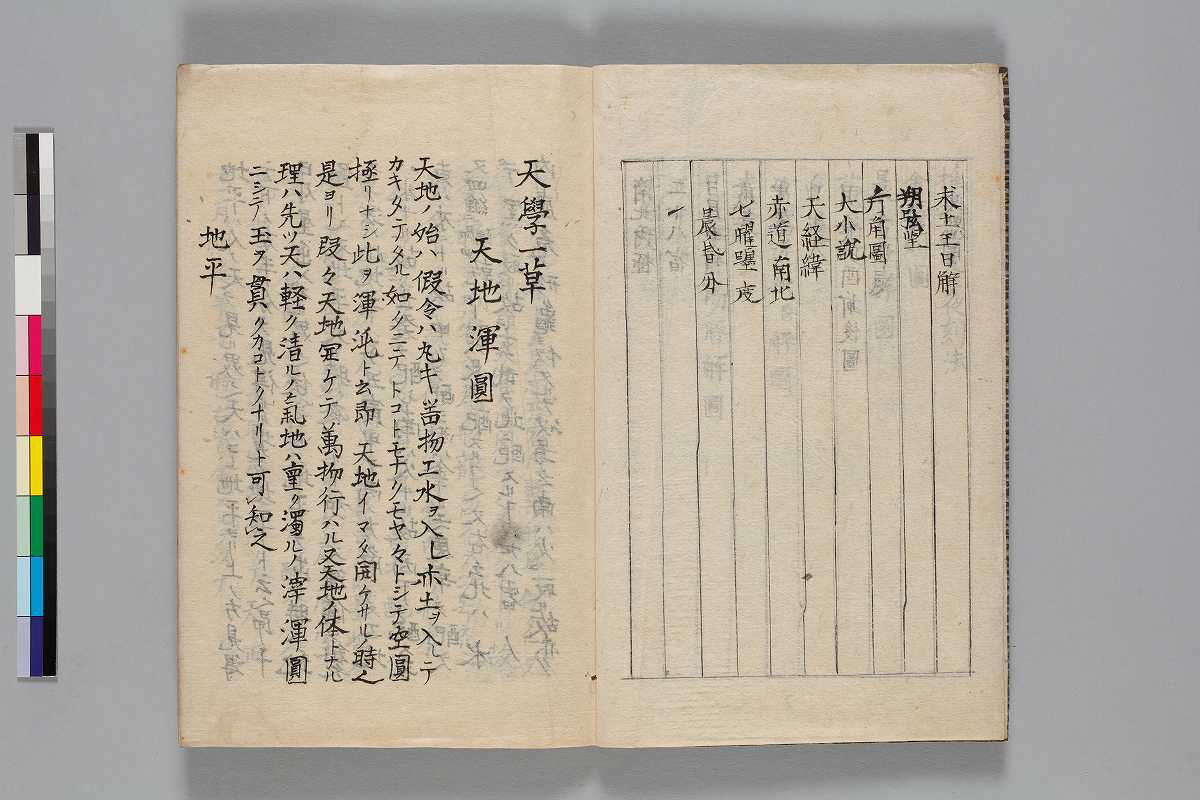 求土王日解
朔弦望
方角圖
大小説
天経緯
赤道南北
七曜躔度
晨昏分
天學一草
天地渾圓
天地ノ始ハ假令ハ丸キ器物エ水ヲ入レ亦土ヲ入レテ
カキタテタル如クニテトコトモナクモヤ々トシテ空圓
極リナシ此ヲ渾沌ト云即天地イマタ開ケサルノ時也
是ヨリ段々天地開ケテ萬物行ハル又天地ノ体トナル
理ハ先ツ天ハ軽ク清ルノ氣地ハ重ク濁ルノ滓渾圓
ニシテ玉ヲ貫クカコトクナリト可知之
地平